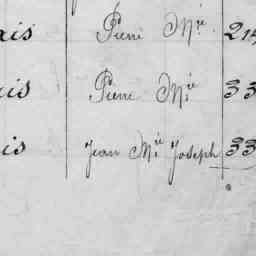 ais Pierre M.ie 214
ais Pierre M.ie 33
is Jean M.ie Joseph 33